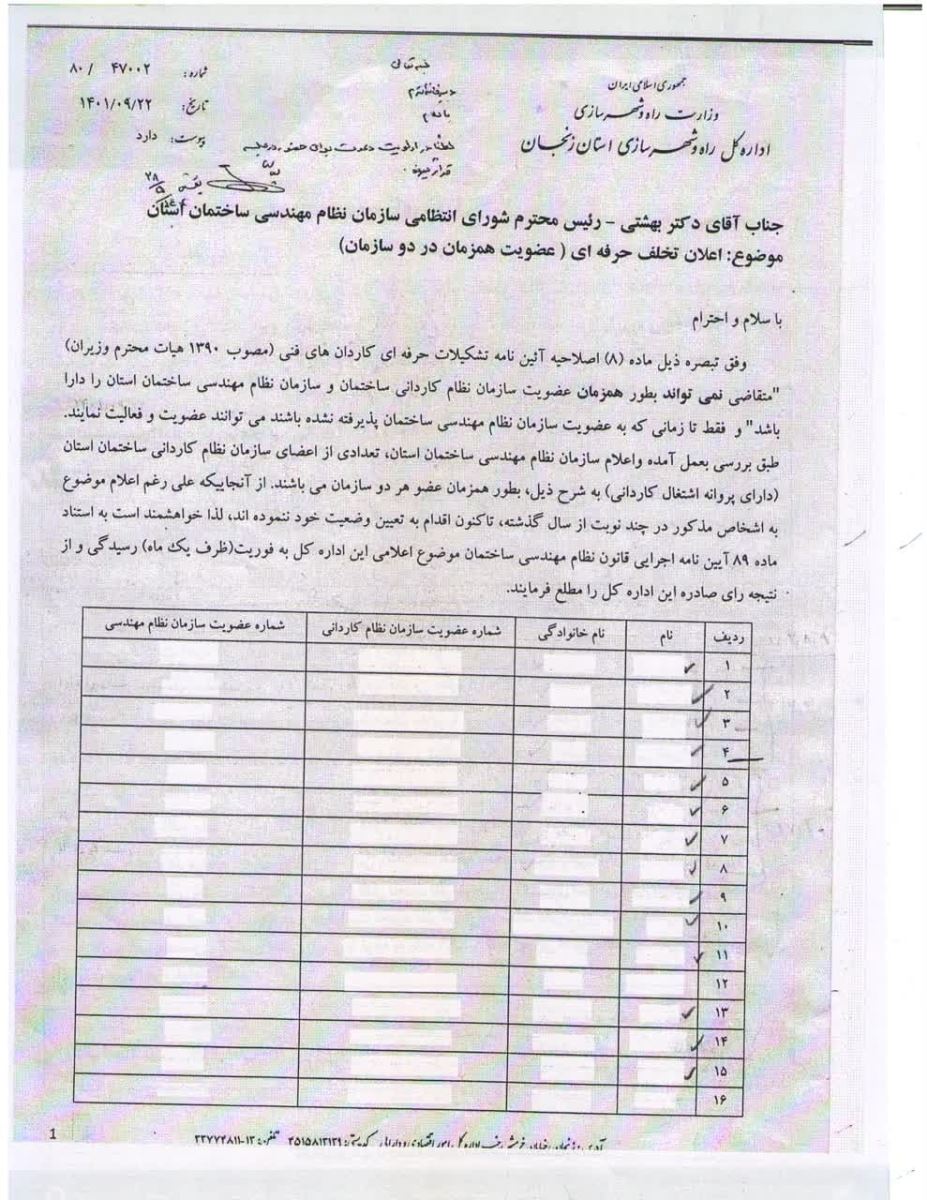 جمهوری اسلامی ایران
وزارت راه و شهرسازی
اداره کل راه و شهرسازی استان زنجان
شماره: ۴۷۰۰۲ / ۸۰
تاریخ: ۱۴۰۱/۰۹/۲۲
پیوست: دارد
جناب آقای دکتر بهشتی – رئیس محترم شورای انتظامی سازمان نظام مهندسی ساختمان استان
موضوع: اعلان تخلف حرفه ای ( عضویت همزمان در دو سازمان)
با سلام و احترام
وفق تبصره ذیل ماده (۸) اصلاحیه آئین نامه تشکیلات حرفه ای کاردان های فنی (مصوب ۱۳۹۰ هیات محترم وزیران)
"متقاضی نمی تواند بطور همزمان عضویت سازمان نظام کاردانی ساختمان و سازمان نظام مهندسی ساختمان استان را دارا
باشد" و فقط تا زمانی که به عضویت سازمان نظام مهندسی ساختمان پذیرفته نشده باشند می توانند عضویت و فعالیت نمایند.
طبق بررسی بعمل آمده واعلام سازمان نظام مهندسی ساختمان استان، تعدادی از اعضای سازمان نظام کاردانی ساختمان استان
(دارای پروانه اشتغال کاردانی) به شرح ذیل، بطور همزمان عضو هر دو سازمان می باشند. از آنجاییکه علی رغم اعلام موضوع
به اشخاص مذکور در چند نوبت از سال گذشته، تاکنون اقدام به تعیین وضعیت خود ننموده اند، لذا خواهشمند است به استناد
ماده ۸۹ آیین نامه اجرایی قانون نظام مهندسی ساختمان موضوع اعلامی این اداره کل به فوریت(ظرف یک ماه) رسیدگی و از
نتیجه رای صادره این اداره کل را مطلع فرمایند.
ردیف نام نام خانوادگی شماره عضویت سازمان نظام کاردانی شماره عضویت سازمان نظام مهندسی
۱
۲
۳
۴
۵
۶
۷
۸
۹
۱۰
۱۱
۱۲
۱۳
۱۴
۱۵
۱۶
1